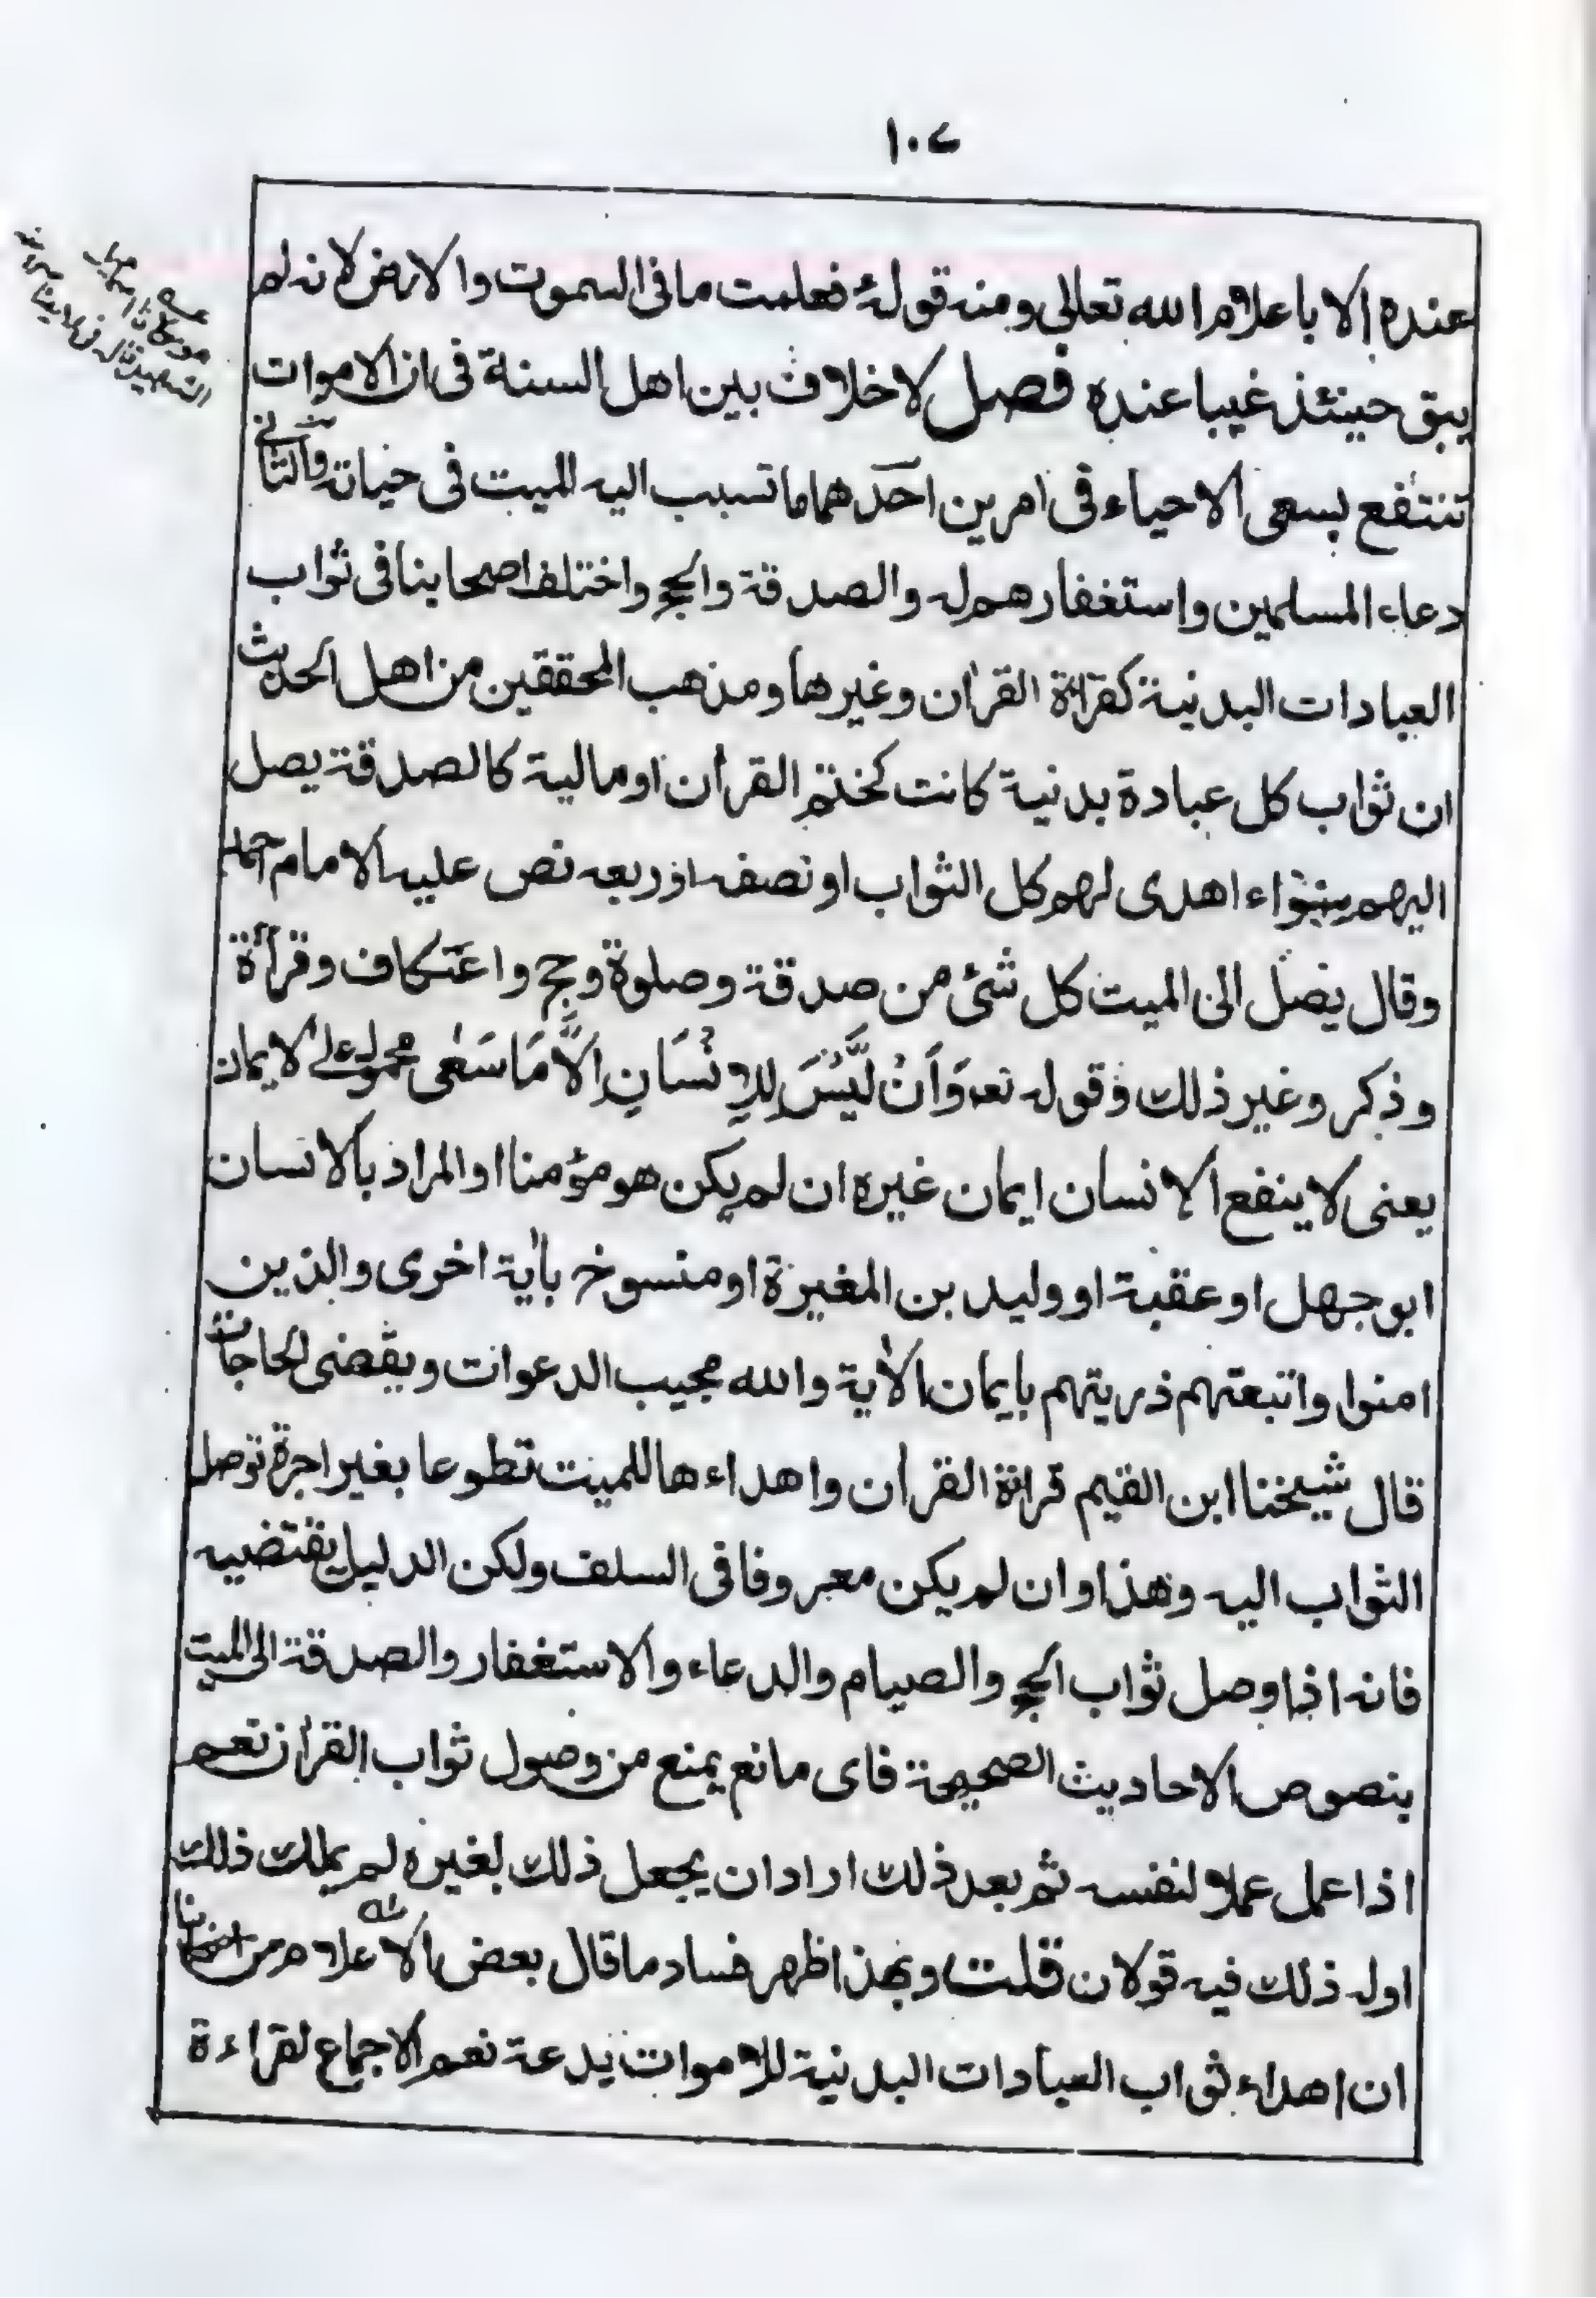 ١٠٧
عنده الا باعلام الله تعالى ومنه قوله فعلمت ما فى السموت والارض لانه لم
يبق حينئذ غيبا عنده فصل لا خلاف بين اهل السنة فى ان الاموات
تنتفع بسعى الاحياء فى امرين احدهما ما تسبب اليه الميت فى حياته والثانى
دعاء المسلمين واستغفارهم له والصدقة والحج واختلف اصحابنا فى ثواب
العبادات البدنية كقرائة القرآن وغيرها ومذهب المحققين من اهل الحديث
ان ثواب كل عبادة بدنية كانت كختم القرآن او مالية كالصدقة يصل
اليهم سواء اهدى لهم كل الثواب او نصفه او ربعه نص عليه الامام احمد
وقال يصل الى الميت كل شئ من صدقة وصلوة وحج واعتكاف وقرأة
وذكر وغير ذلك وقوله تعه وَاَنْ لَّيْسَ لِلْاِنْسَانِ اِلَّا مَا سَعٰى محمول على الايمان
يعنى لا ينفع الانسان ايمان غيره ان لم يكن هو مؤمنا او المراد بالانسان
ابو جهل او عقبة او وليد بن المغيرة او منسوخ بأية اخرى والذين
امنوا واتبعتهم ذريتهم بايمان الأية والله مجيب الدعوات ويقضى الحاجات
قال شيخنا ابن القيم قرائة القرآن واهداءها للميت تطوعا بغير اجرة توصل
الثواب اليه وهذا وان لم يكن معروفا فى السلف ولكن الدليل يقتضيه
فانه اذا وصل ثواب الحج والصيام والدعاء والاستغفار والصدقة الى الميت
بنصوص الاحاديث الصحيحة فاى مانع يمنع من وصول ثواب القرآن نعم
اذا عمل عملا لنفسه ثم بعد ذلك اراد ان يجعل ذلك لغيره لم يملك ذلك
اوله ذلك فيه قولان قلت وبهذا ظهر فساد ما قال بعض الاعلام من اصحابنا
ان اهداء ثواب العبادات البدنية للاموات بدعة نعم الاجماع لقراءة